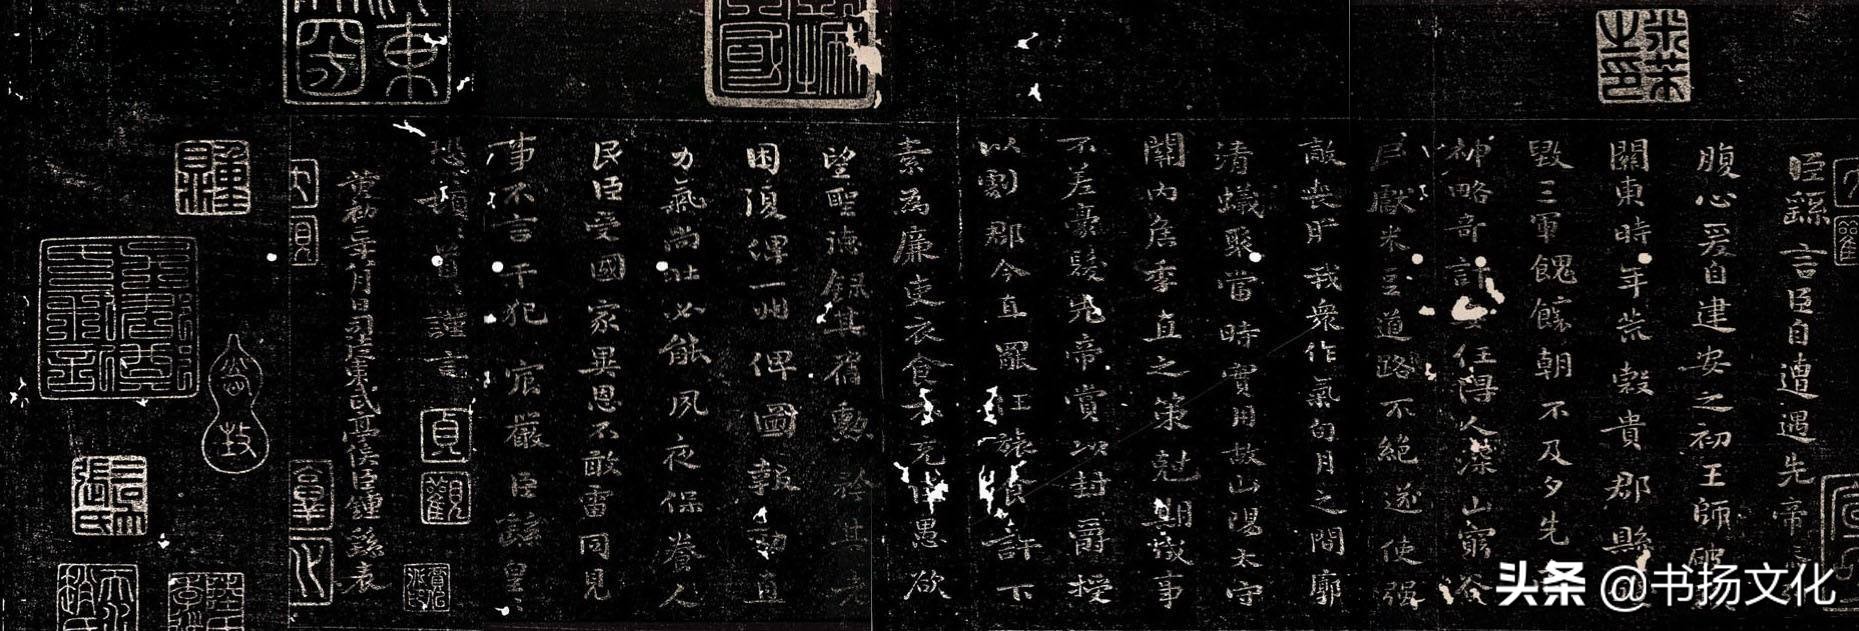 臣繇言臣自遭遇先帝
腹心爰自建安之初王師破
關東時年荒穀貴郡縣
毀三軍餽饟朝不及夕先
神略奇計任得人深山窮谷
民獻米豆道路不絕遂使强
敵喪膽我衆作氣旬月之間廓
清蟻聚當時實用故山陽太守
關內侯季直之策剋期成事
不差豪髮先帝賞以封爵授
以劇郡今直罷任旅食許下
素為廉吏衣食不充臣愚欲
望聖德錄其舊勳矜其老
困復俾一州俾圖報効直
力氣尚壯必能夙夜保養人
民臣受國家異恩不敢雷同見
事不言干犯宸嚴臣繇皇
恐頓首謹言
黃初二年月日司徒東武亭侯臣鍾繇表
米芾之印
頭条 @书扬文化